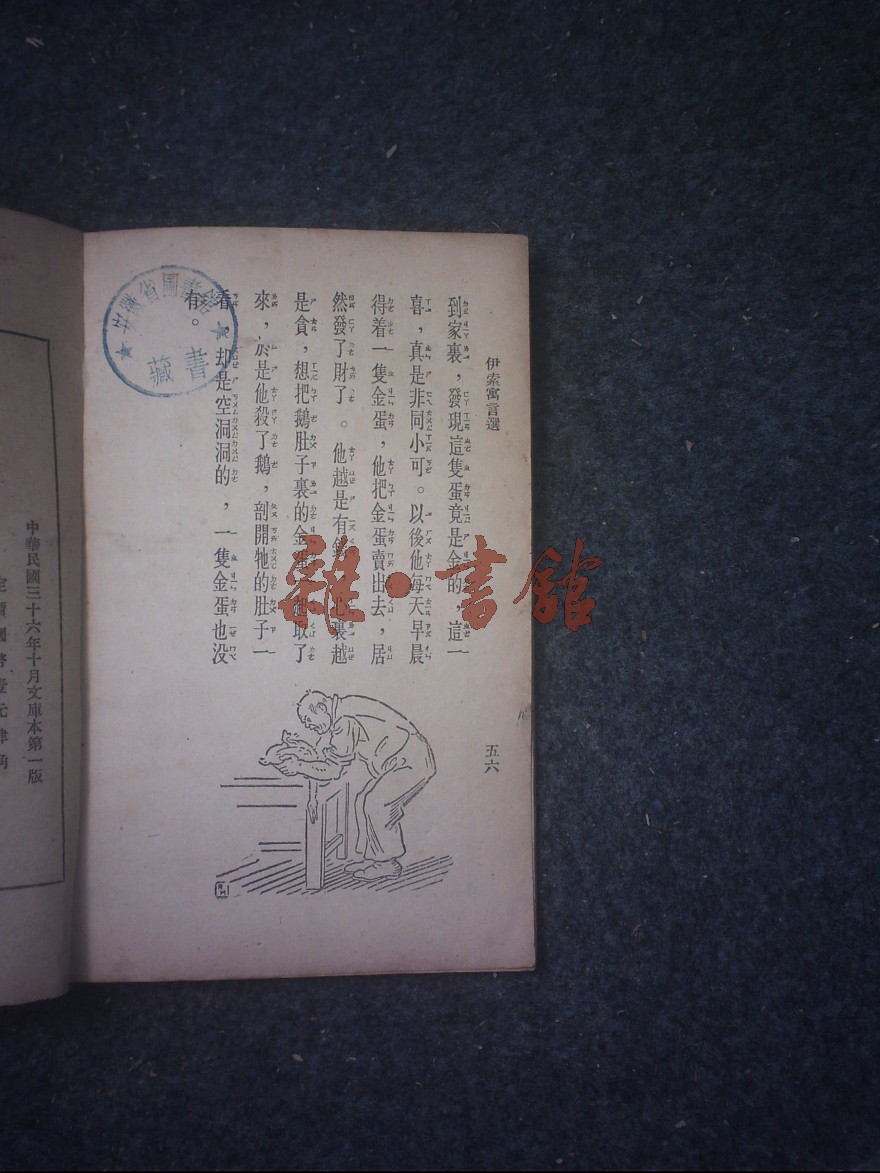 伊索寓言選
到家裏，發現這隻蛋竟是金的，這一
喜，真是非同小可。以後他每天早晨
得着一隻金蛋，他把金蛋賣出去，居
然發了財了。他越是有錢，心裏越
是貪，想把鵝肚子裏的金蛋一起取了
來，於是他殺了鵝，剖開牠的肚子一
看，却是空洞洞的，一隻金蛋也没
有。
五六
安徽省圖書館
藏書
雜·書館
中華民國三十六年十月文庫本第一版
定價國幣壹元肆角